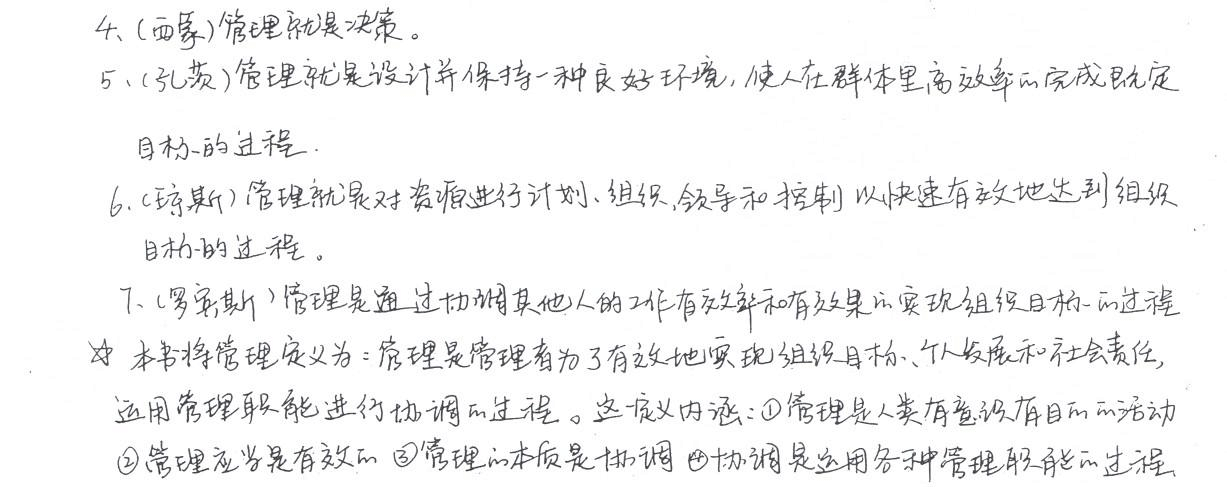 4、(西蒙)管理就是决策。
5、(孔茨)管理就是设计并保持一种良好环境,使人在群体里高效率的完成既定
目标的过程.
6、(琼斯)管理就是对资源进行计划、组织、领导和控制以快速有效地达到组织
目标的过程。
7、(罗宾斯)管理是通过协调其他人的工作有效率和有效果的实现组织目标的过程
☆ 本书将管理定义为:管理是管理者为了有效地实现组织目标、个人发展和社会责任,
运用管理职能进行协调的过程。这一定义内涵:①管理是人类有意识有目的的活动
②管理应当是有效的 ③管理的本质是协调 ④协调是运用各种管理职能的过程.